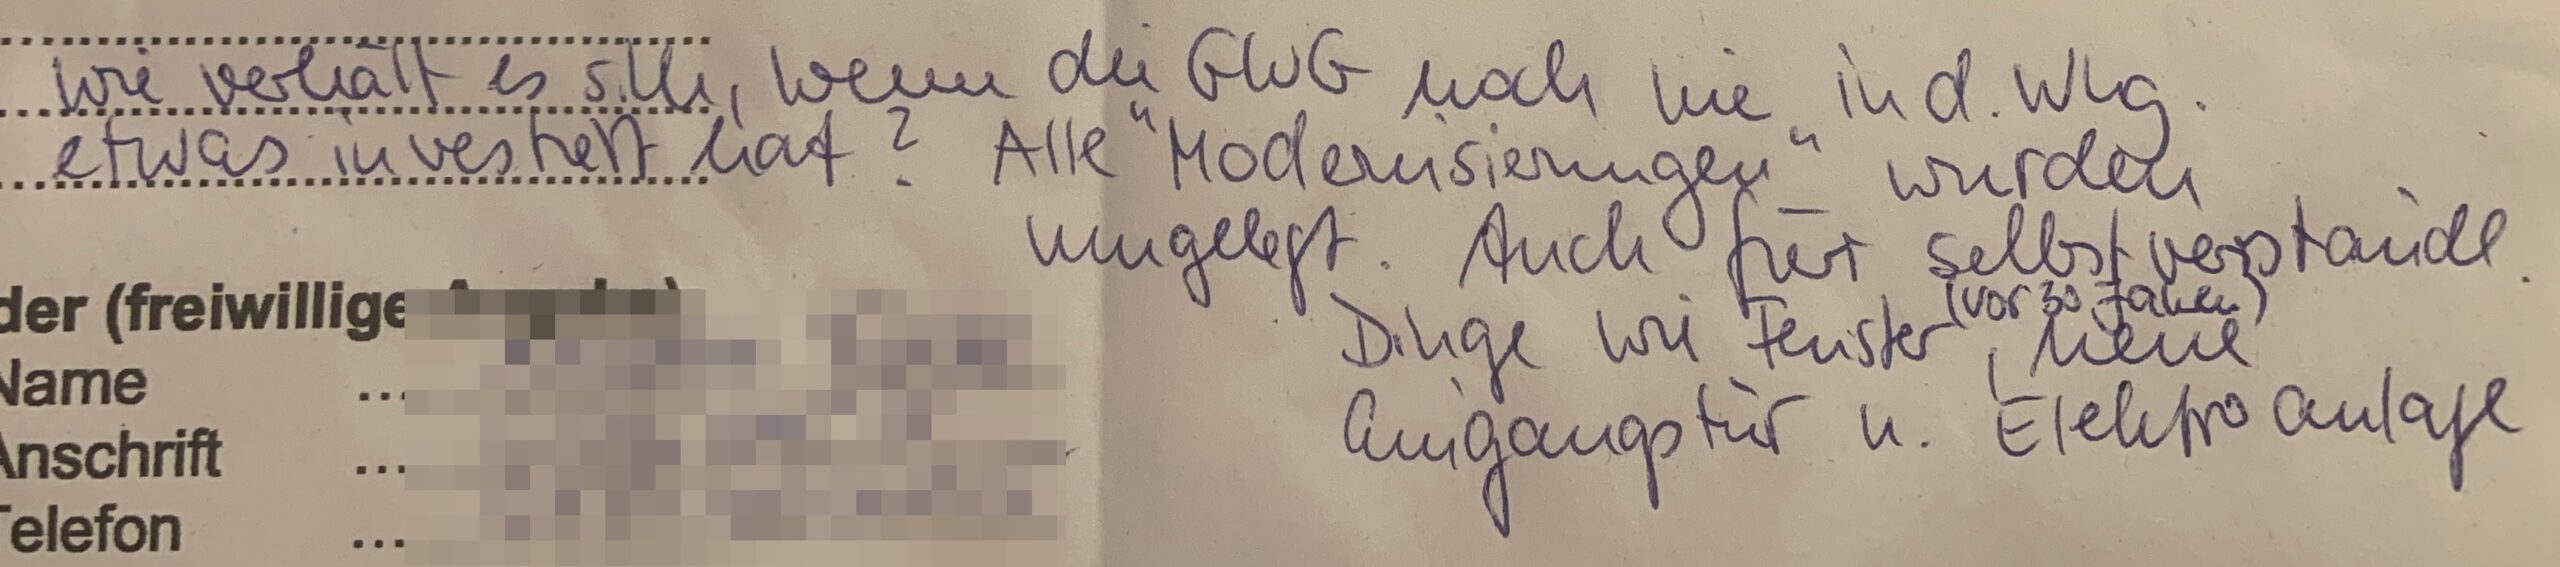 wie verhält es sich, wenn die GWG noch nie in d. Whg.
etwas investiert hat? Alle "Modernisierungen" wurden
umgelegt. Auch für selbstverständl.
Dinge wie Fenster (vor 30 Jahren), neue
Eingangstür u. Elektroanlage
der (freiwillige
Name ...
Anschrift ...
Telefon ...